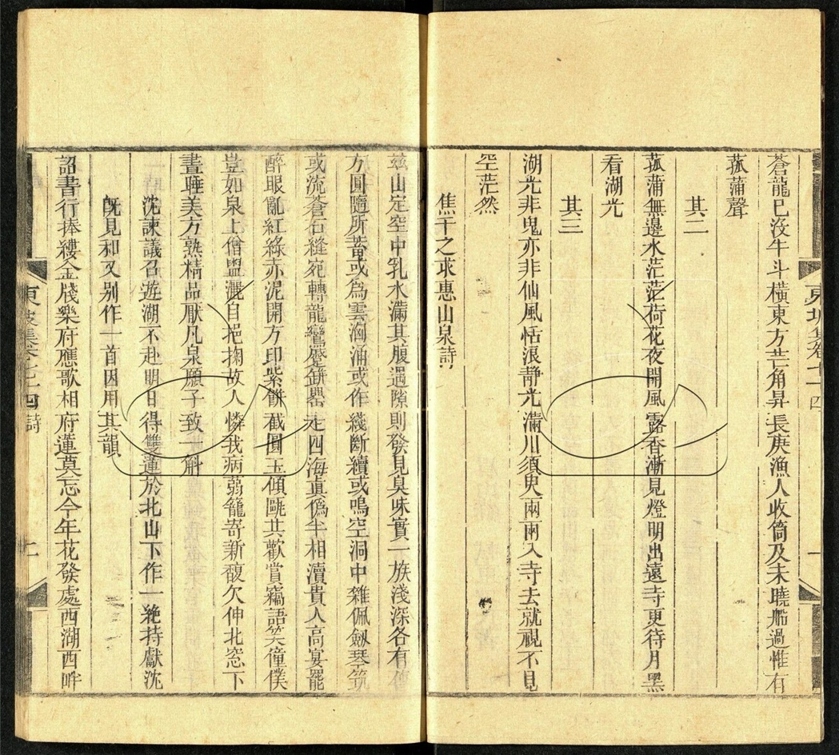 蒼龍已沒牛斗橫東方芒角昇長庚漁人收筒及未曉船過惟有
菰蒲聲
其二
菰蒲無邊水茫茫荷花夜開風露香漸見燈明出遠寺更待月黑
看湖光
其三
湖光非鬼亦非仙風恬浪靜光滿川須臾兩兩入寺去就視不見
空茫然
焦千之求惠山泉詩
茲山定空中乳水滿其腹遇隙則發見臭味實一族淺深各有
方圓隨所蓄或為雲洶涌或作綫斷續或鳴空洞中雜佩劔琴筑
或流蒼石縫宛轉龍鸞蹙缾罌走四海真偽半相瀆貴人高宴罷
醉眼亂紅綠赤泥開方印紫餅截圓玉傾甌共歡賞竊語笑僮僕
豈如泉上僧盥灑自挹掬故人憐我病蒻籠寄新馥欠伸北窓下
晝睡美方熟精品厭凡泉願子致一斛
沈諫議召遊湖不赴明日得雙蓮於北山下作一絶持獻沈
既見和又别作一首因用其韻
詔書行捧縷金牋樂府應歌相府蓮莫忘今年花發處西湖西畔
東坡集卷七十四
一
東坡集卷七十四 詩
二